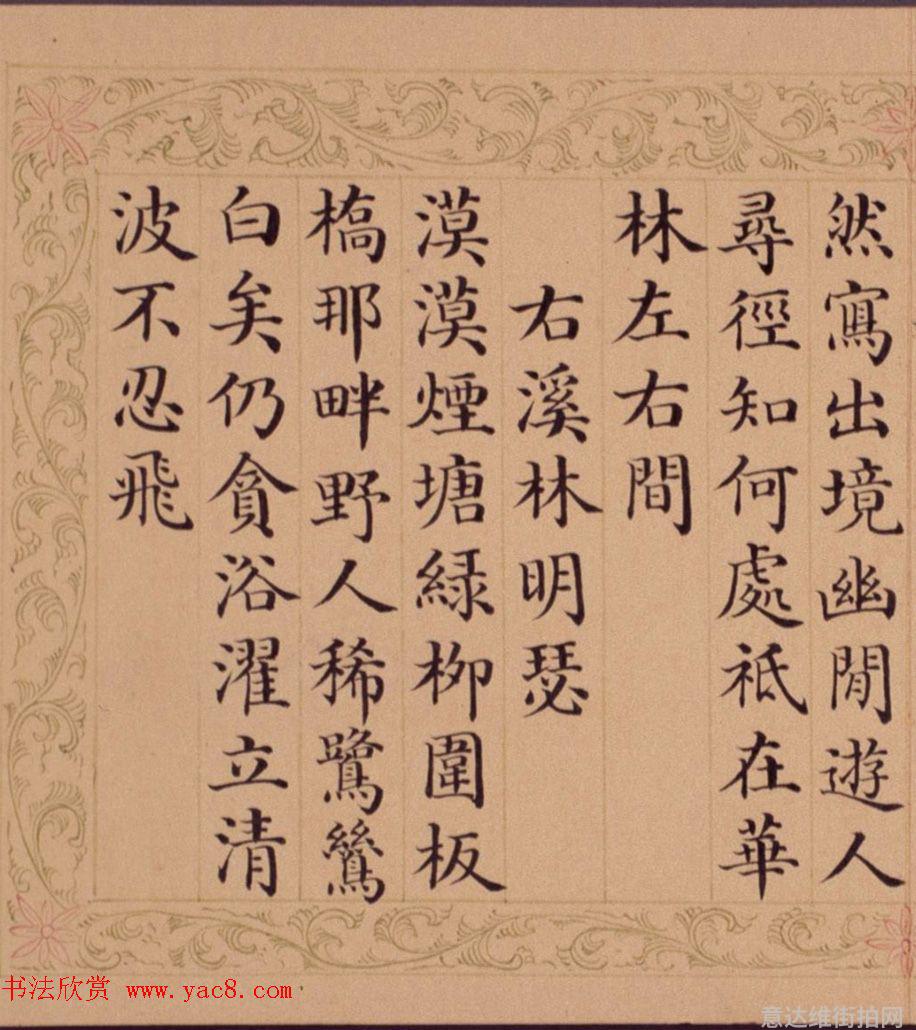 然寫出境幽閒遊人
尋徑知何處祗在華
林左右間
右溪林明瑟
漠漠煙塘綠柳圍板
橋那畔野人稀鷺鷥
白矣仍貪浴濯立清
波不忍飛
书法欣赏 www.yac8.com
意达维街拍网